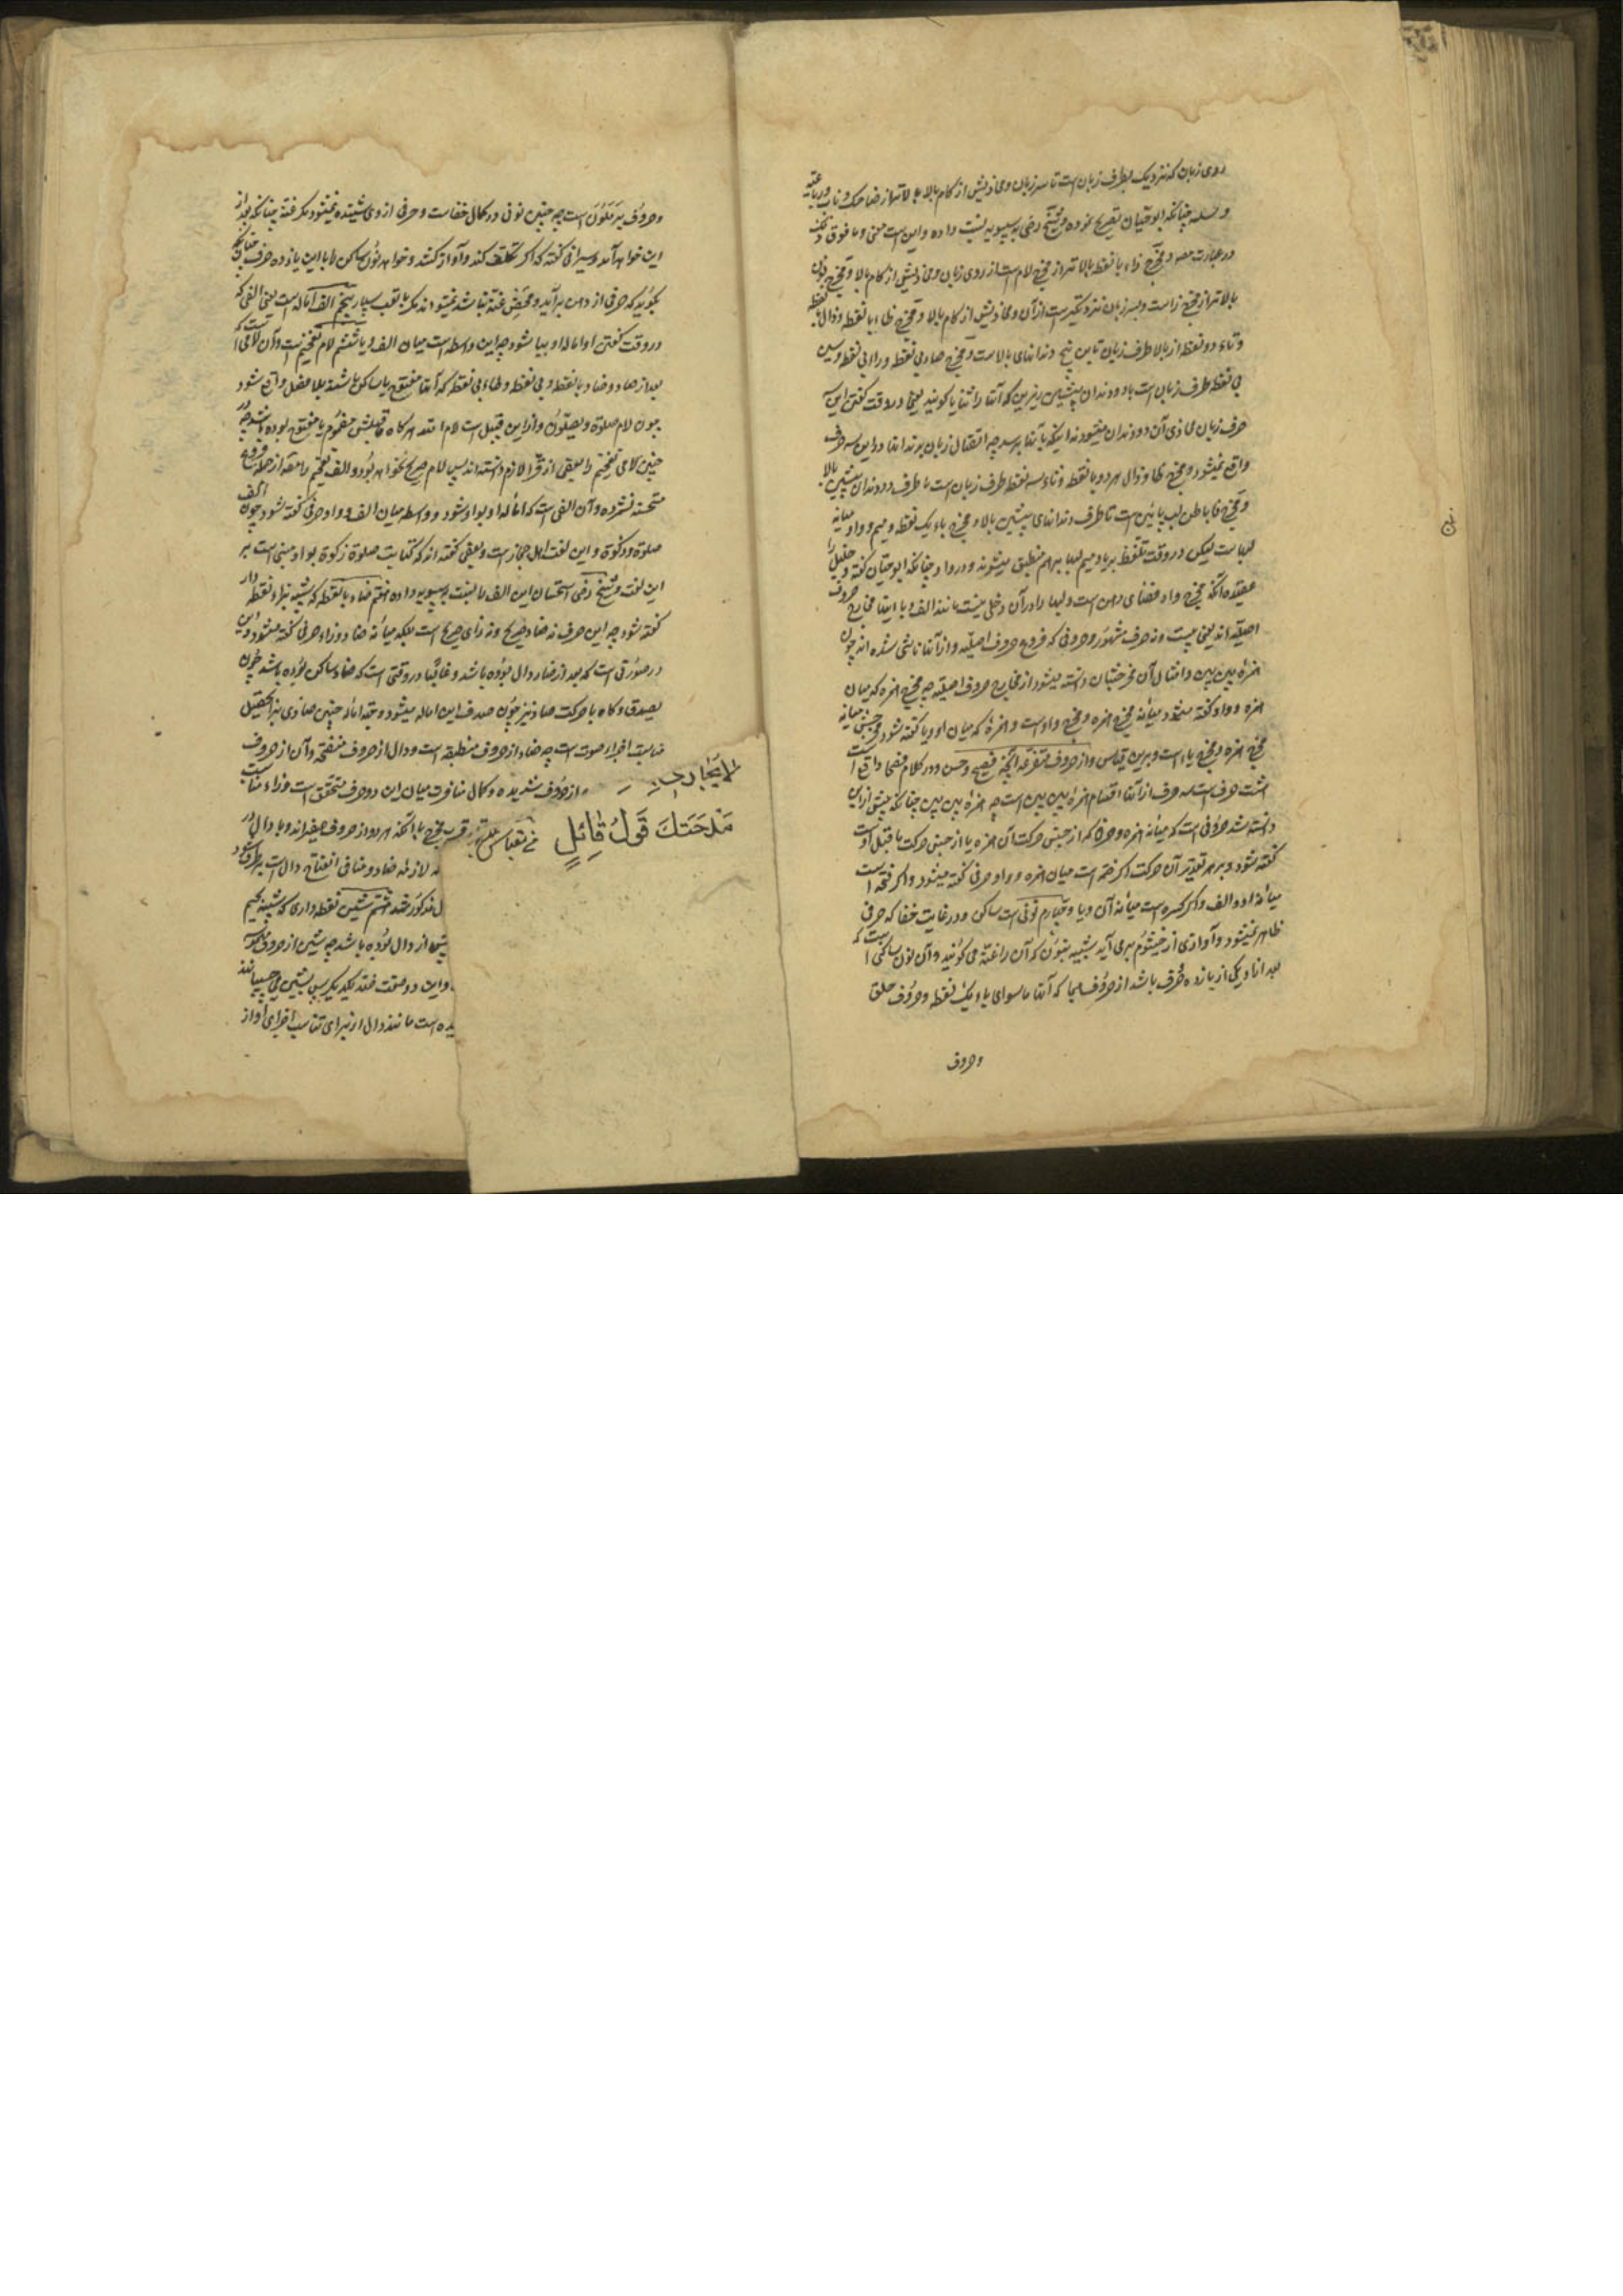 روی زبان که نزدیک بطرف زبان است تا سر زبان و محاذیش از کام بالا بالاتر از ضاحک و ناب و رباعیه
و ثنیه چنانکه ابوحیان تصریح نموده و شیخ رضی بسیبویه نسبت داده و این است معنی وما فوق ذلک
در عبارت مصه و مخرج راء با نقطه بالاتر از مخرج لام است از روی زبان و محاذیش از کام بالا و مخرج نون
بالاتر از مخرج راست و بسر زبان نزدیکتر است از آن و محاذیش از کام بالا و مخرج طاء با نقطه و دال بی نقطه
و تاء دو نقطه از بالا طرف زبان تا بن بیخ دندانهای بالاست و مخرج صاد بی نقطه و زاء بی نقطه و سین
بی نقطه طرف زبان است با دو دندان پیشین زیرین که آنها را ثنایا گویند یعنی در وقت گفتن این
حرف زبان محاذی آن دو دندان میشود نه اینکه بآنها برسد چه اتصال زبان بدندانها در این سه حرف
واقع نمیشود و مخرج ظا و ذال هر دو با نقطه و ثاء سه نقطه طرف زبان است با طرف دو دندان پیشین بالا
و مخرج فا باطن لب پائین است تا طرف دندانهای پیشین بالا و مخرج باء یک نقطه و میم و واو میانه
لبهاست لیکن در وقت تلفظ ببا و میم لبها بر هم منطبق میشوند و در واو چنانکه ابوحیان گفته و خلیل را
عقیده آنکه مخرج واو فضای دهن است و لبها را در آن دخلی نیست مانند الف و یا اینها مخارج حروف
اصلیه اند یعنی بیست و نه حرف مشهور و حروفی که فروع حروف اصلیه و از آنها ناشی شده اند چون
همزه بین بین و امثال آن مخرجشان دانسته میشود از مخارج حروف اصلیه چه مخرج همزه که میان
همزه و واو گفته میشود میانه مخرج همزه و مخرج واو است و همزه که میان او و یا گفته شود مخرجش میانه
مخرج همزه و مخرج یاء است و برین قیاس و از حروف متفرعه آنچه فصیح و حسن و در کلام فصحا واقع است
هشت حرف است سه حرف از آنها اقسام همزه بین بین است چه همزه بین بین چنانکه پیش ازین
دانسته شد حرفی است که میانه همزه و حرفی که از جنس حرکت آن همزه یا از جنس حرکت ما قبل اوست
گفته شود و بر هر تقدیر آن حرکت اگر ضمه است میان همزه و واو حرفی گفته میشود و اگر فتحه است
میانه او و الف و اگر کسره است میانه آن و یا و چهارم نونی است ساکن و در غایت خفا که حرفی
ظاهر نمیشود و آوازی از خیشوم بر می آید شبیه بنون که آن را غنه می گویند و آن نون ساکنی است که
بعد از او یکی از پازده حرف باشد از حروف هجا که آنها ماسوای باء یک نقطه و حروف حلق
وحروف
و حروف یرملون است چه چنین نونی در کمال خفاست و حرفی از وی شنیده نمیشود مگر غنه چنانکه بعد از
این خواهد آمد و سیرافی گفته که اگر تکلف کند و آواز کشد و خواهد نون ساکن را با این پازده حرف چنانکه
بگوید که حرفی از دهن برآید و محض غنه نباشد نمیتواند مگر با تعب بسیار پنجم الف اماله است یعنی الفی که
در وقت گفتن او اماله او بیا شود چه این واسطه است میان الف و یا ششم لام تفخیم است و آن لامی است که
بعد از صاد و ضاد با نقطه و بی نقطه و طاء بی نقطه که آنها مفتوح یا ساکن باشند بلا فصل واقع شود
چون لام صلوة و یصلون و ازاین قبیل است لام الله هر گاه ما قبلش مضموم یا مفتوح بوده باشد چه
چنین لامی تفخیم را بعضی از قرا لازم دانسته اند پس لام صریح نخواهد بود و الف تفخیم را مصه از جمله فروع
مستحسنه نشمرده و آن الفی است که اماله او بواو شود و واسطه میان الف و واو حرفی گفته شود چون الف
صلوة و زکوة و این لغت اهل حجاز است و بعضی گفته اند که کتابت صلوة زکوة بواو مبنی است بر
این لغت و شیخ رضی استحسان این الف را نسبت بسیبویه داده هفتم صاد بی نقطه که شبیه بزاء نقطه دار
گفته شود چه این حرف نه صاد صریح و نه زای صریح است بلکه میانه صاد و زاء حرفی گفته میشود و این
در صورتی است که بعد از صاد دال بوده باشد و غالبا در وقتی است که صاد ساکن بوده باشد چون
یصدق و گاه با حرکت صاد نیز چون صدف این اماله میشود و عمده اماله چنین صادی بزا تحصیل
مناسبت اجزاء صوت است چه صاد از حروف منطبقه است و دال از حروف منفتحه و آن از حروف
از حروف شدیده و کمال منافرت میان این دو حرف متحقق است و زاء مناسبت
قرب مخرج با آنکه هر دو از حروف صفیراند و با دال در
لازمه صاد و منافی انفتاح دال است برطرف شود
مذکور شد هشتم شین نقطه داری که شبیه بجیم
پیش از دال بوده باشد چه شین از حروف مهموسه
و این دو صفت ضد یکدیگرند پس شین می چسپانند
یده است مانند دال از برای تناسب اجزای آواز
لا یجارب
مدحتک قول قائل